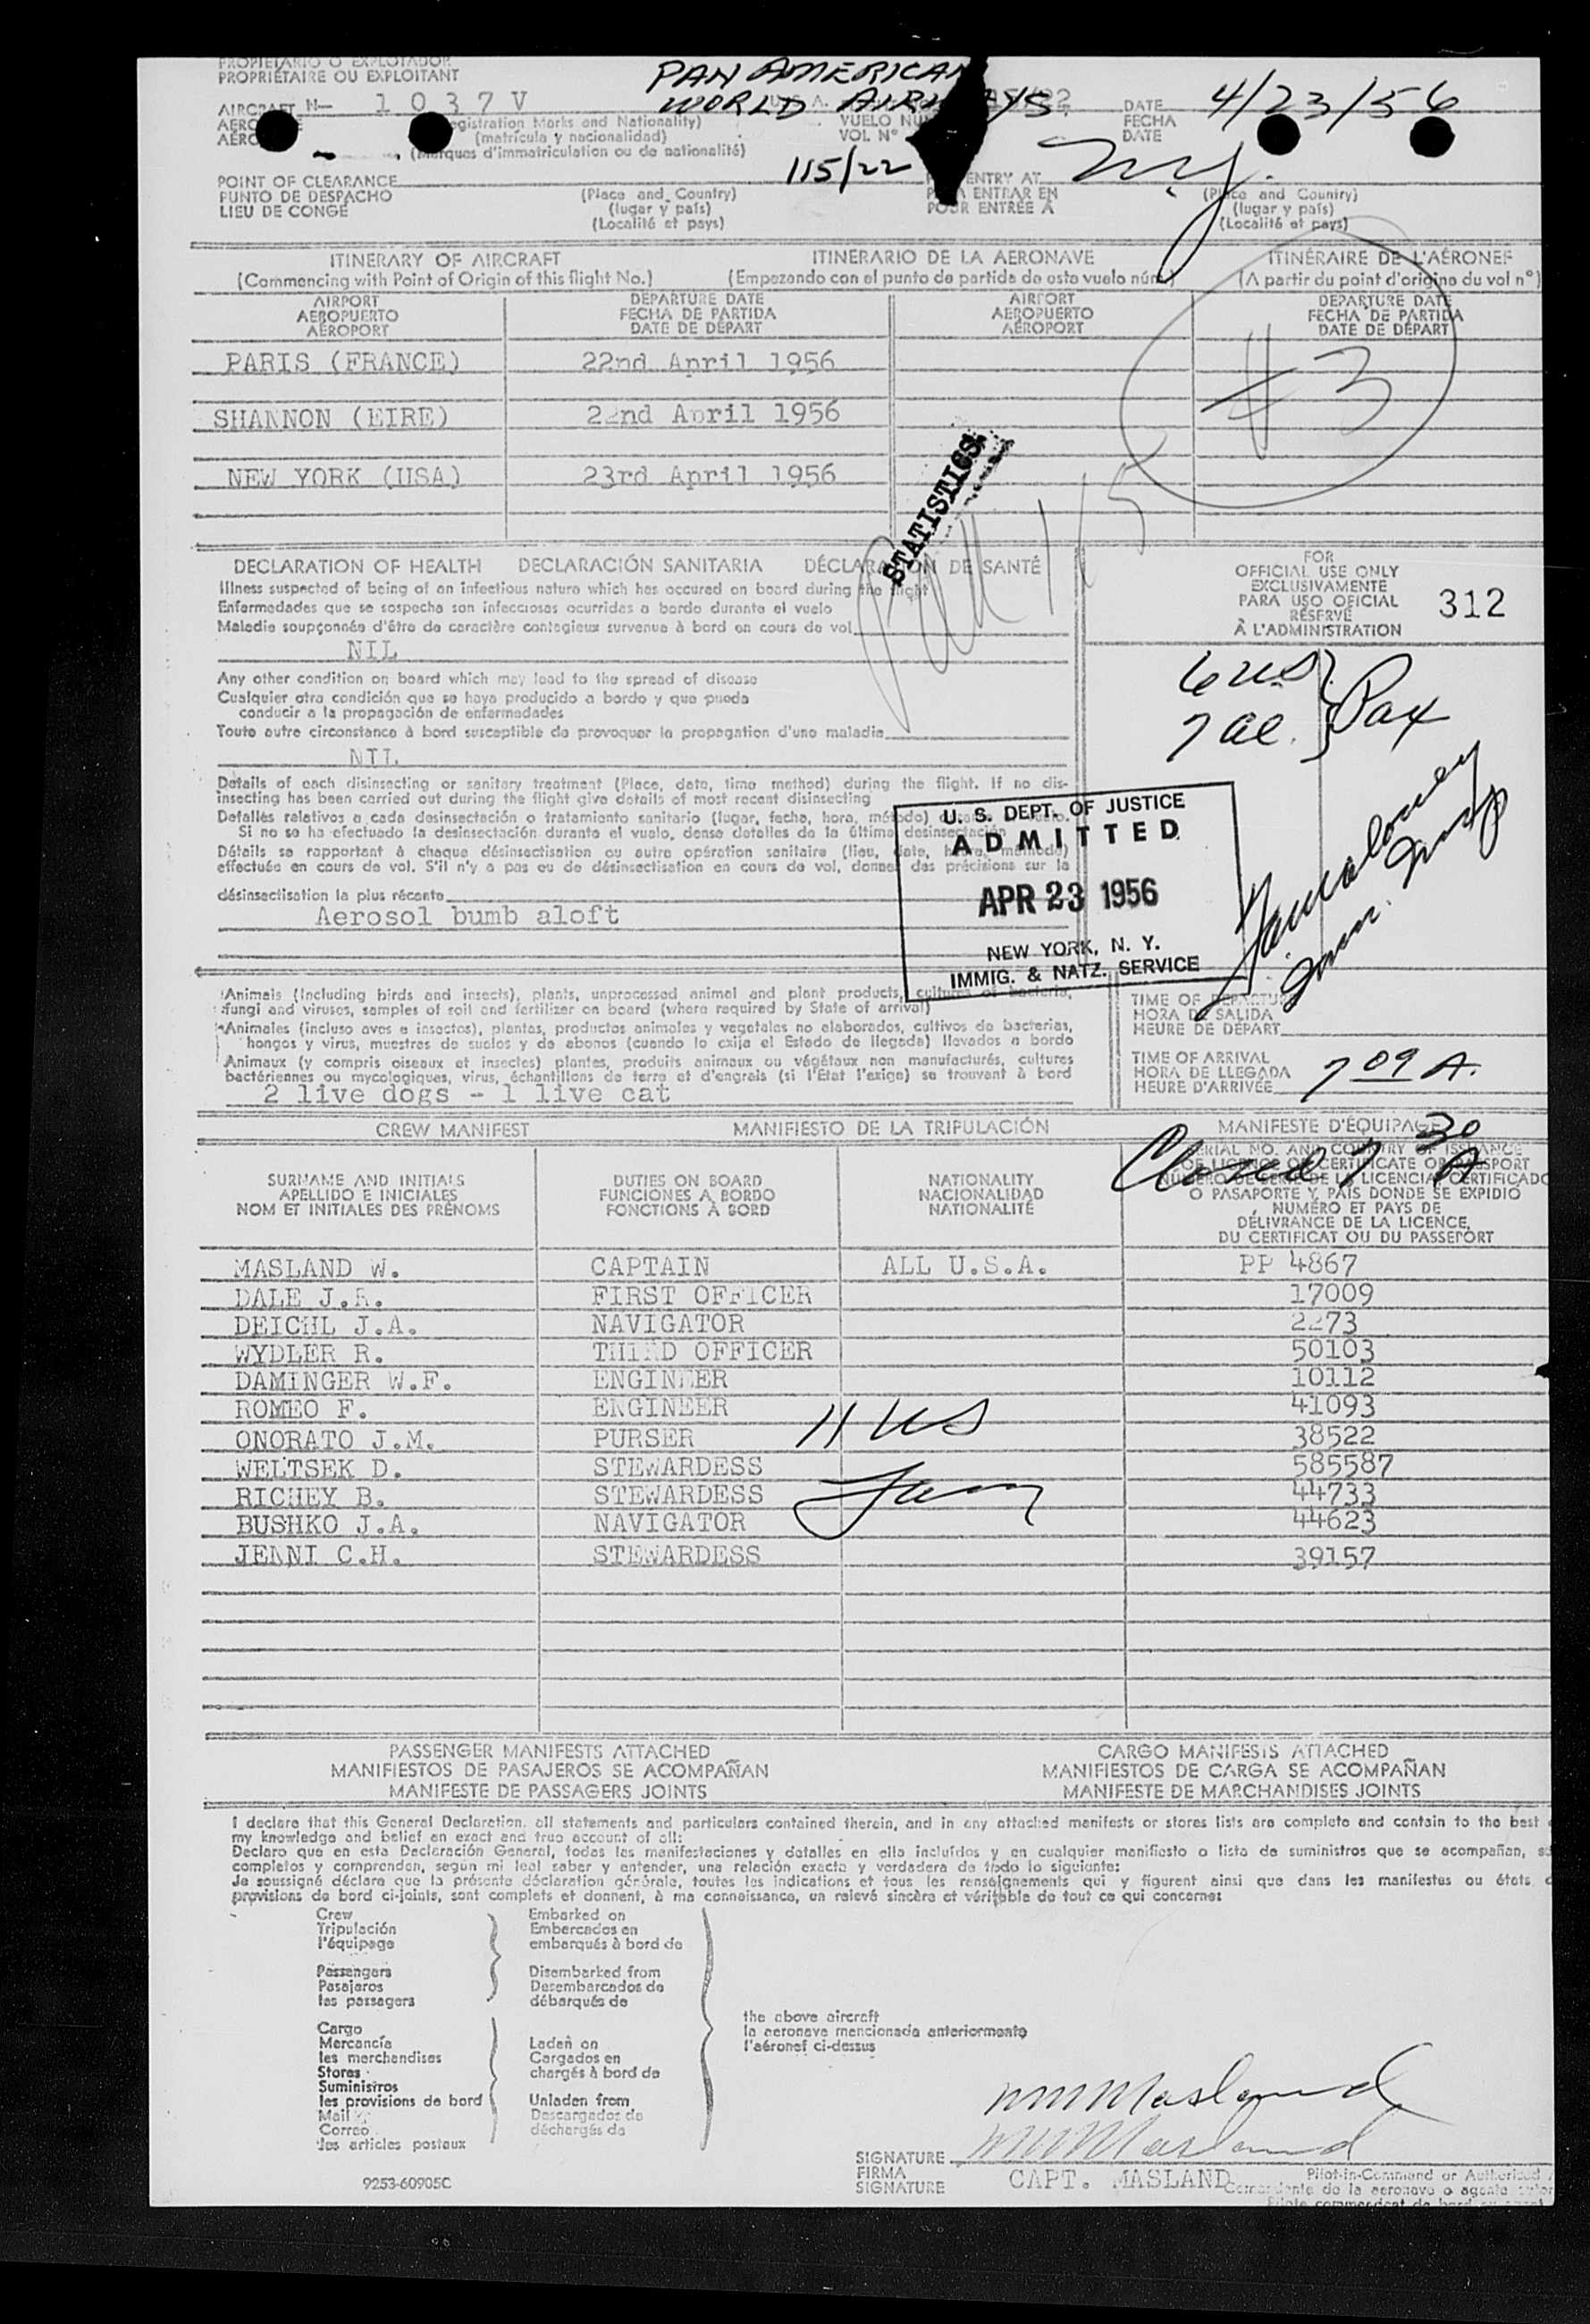 PROPIETARIO O EXPLOTADOR
PROPRIÉTAIRE OU EXPLOITANT
PAN AMERICAN
WORLD AIRWAYS.
AIRCRAFT N- 1 0 3 7 V
(matrícula y nacionalidad)
(Marques d'immatriculation ou de nationalité)
VUELO
VOL N°
115/22
DATE
FECHA
DATE
4/23/56
POINT OF CLEARANCE
PUNTO DE DESPACHO
LIEU DE CONGÉ
(Place and Country)
(lugar y país)
(Localité et pays)
ENTRY AT
ENTRAR EN
POUR ENTRÉE A
N.Y.
(Place and Country)
(lugar y país)
(Localité et pays)
ITINERARY OF AIRCRAFT ITINERARIO DE LA AERONAVE ITINÉRAIRE DE L'AÉRONEF
(Commencing with Point of Origin of this flight No.) (Empezando con el punto de partida de este vuelo núm.) (A partir du point d'origine du vol n°)
AIRPORT DEPARTURE DATE AIRPORT DEPARTURE DATE
AEROPUERTO FECHA DE PARTIDA AEROPUERTO FECHA DE PARTIDA
AÉROPORT DATE DE DÉPART AÉROPORT DATE DE DÉPART
PARIS (FRANCE) 22nd April 1956
SHANNON (EIRE) 22nd April 1956
NEW YORK (USA) 23rd April 1956
#3
STATISTICS
115
DECLARATION OF HEALTH DECLARACIÓN SANITARIA DÉCLARATION DE SANTÉ
Illness suspected of being of an infectious nature which has occured on board during the flight
Enfermedades que se sospecha son infecciosas ocurridas a bordo durante el vuelo
Maladie soupçonnée d'être de caractère contagieux survenue à bord en cours de vol
NIL
Any other condition on board which may lead to the spread of disease
Cualquier otra condición que se haya producido a bordo y que pueda
conducir a la propagación de enfermedades
Toute autre circonstance à bord susceptible de provoquer la propagation d'une maladie
NIL
Details of each disinsecting or sanitary treatment (Place, date, time method) during the flight. If no dis-
insecting has been carried out during the flight give details of most recent disinsecting
Detalles relativos a cada desinsectación o tratamiento sanitario (lugar, fecha, hora, método)
Si no se ha efectuado la desinsectación durante el vuelo, dense detalles de la última desinsectación
Détails se rapportant à chaque désinsectisation ou autre opération sanitaire (lieu, date, heure, méthode)
effectuée en cours de vol. S'il n'y a pas eu de désinsectisation en cours de vol, donner des précisions sur la
désinsectisation la plus récente
Aerosol bumb aloft
FOR
OFFICIAL USE ONLY
EXCLUSIVAMENTE
PARA USO OFICIAL
RÉSERVÉ
À L'ADMINISTRATION
312
6 US
7 al. } Pax
U. S. DEPT. OF JUSTICE
ADMITTED
APR 23 1956
NEW YORK, N. Y.
IMMIG. & NATZ. SERVICE
Animals (Including birds and insects), plants, unprocessed animal and plant products, cultures of bacteria,
fungi and viruses, samples of soil and fertilizer on board (where required by State of arrival)
Animales (incluso aves e insectos), plantas, productos animales y vegetales no elaborados, cultivos de bacterias,
hongos y virus, muestras de suelos y de abonos (cuando lo exija el Estado de llegada) llevados a bordo
Animaux (y compris oiseaux et insectes) plantes, produits animaux ou végétaux non manufacturés, cultures
bactériennes ou mycologiques, virus, échantillons de terre et d'engrais (si l'État l'exige) se trouvant à bord
2 live dogs - 1 live cat
TIME OF DEPARTURE
HORA DE SALIDA
HEURE DE DÉPART
TIME OF ARRIVAL
HORA DE LLEGADA
HEURE D'ARRIVÉE
7 09 A.
Cleared 7 30 A
CREW MANIFEST MANIFIESTO DE LA TRIPULACIÓN MANIFESTE D'ÉQUIPAGE
SURNAME AND INITIALS
APELLIDO E INICIALES
NOM ET INITIALES DES PRÉNOMS
DUTIES ON BOARD
FUNCIONES A BORDO
FONCTIONS À BORD
NATIONALITY
NACIONALIDAD
NATIONALITÉ
SERIAL NO. AND COUNTRY OF ISSUANCE
OF LICENCE OR CERTIFICATE OR PASSPORT
NÚMERO DE SERIE DE LA LICENCIA, CERTIFICADO
O PASAPORTE Y PAÍS DONDE SE EXPIDIÓ
NUMÉRO ET PAYS DE
DÉLIVRANCE DE LA LICENCE,
DU CERTIFICAT OU DU PASSEPORT
MASLAND W. CAPTAIN ALL U.S.A. PP 4867
DALE J.R. FIRST OFFICER 17009
DEICHL J.A. NAVIGATOR 2273
WYDLER R. THIRD OFFICER 50103
DAMINGER W.F. ENGINEER 10112
ROMEO F. ENGINEER 41093
ONORATO J.M. PURSER 38522
WELTSEK D. STEWARDESS 585587
RICHEY B. STEWARDESS 44733
BUSHKO J.A. NAVIGATOR 44623
JENNI C.H. STEWARDESS 39157
11 US
PASSENGER MANIFESTS ATTACHED CARGO MANIFESTS ATTACHED
MANIFIESTOS DE PASAJEROS SE ACOMPAÑAN MANIFIESTOS DE CARGA SE ACOMPAÑAN
MANIFESTE DE PASSAGERS JOINTS MANIFESTE DE MARCHANDISES JOINTS
I declare that this General Declaration, all statements and particulars contained therein, and in any attached manifests or stores lists are complete and contain to the best
my knowledge and belief an exact and true account of all:
Declaro que en esta Declaración General, todas las manifestaciones y detalles en ella incluídos y en cualquier manifiesto o lista de suministros que se acompañan,
completos y comprenden, según mi leal saber y entender, una relación exacta y verdadera de todo lo siguiente:
Je soussigné déclare que la présente déclaration générale, toutes les indications et tous les renseignements qui y figurent ainsi que dans les manifestes ou états
provisions de bord ci-joints, sont complets et donnent, à ma connaissance, un relevé sincère et véritable de tout ce qui concerne:
Crew
Tripulación
l'équipage
Passengers
Pasajeros
les passagers
Embarked on
Embarcados en
embarqués à bord de
Disembarked from
Desembarcados de
débarqués de
Cargo
Mercancía
les marchandises
Stores
Suministros
les provisions de bord
Mail
Correo
les articles postaux
Laden on
Cargados en
chargés à bord de
Unladen from
Descargados de
déchargés de
the above aircraft
la aeronave mencionada anteriormente
l'aéronef ci-dessus
WMMasland
WMMasland
SIGNATURE
FIRMA
SIGNATURE
CAPT. MASLAND
Pilot-in-Command or Authorized
Comandante de la aeronave o agente
Pilote commandant de bord
9253-60905C